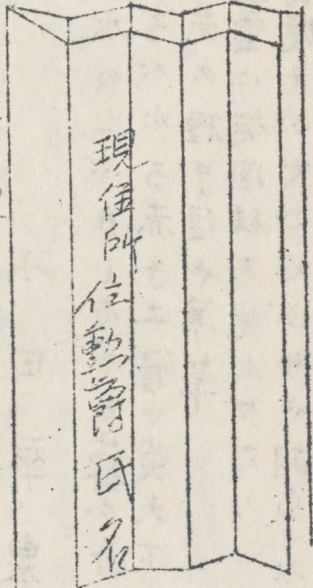 現住所位勲爵氏名